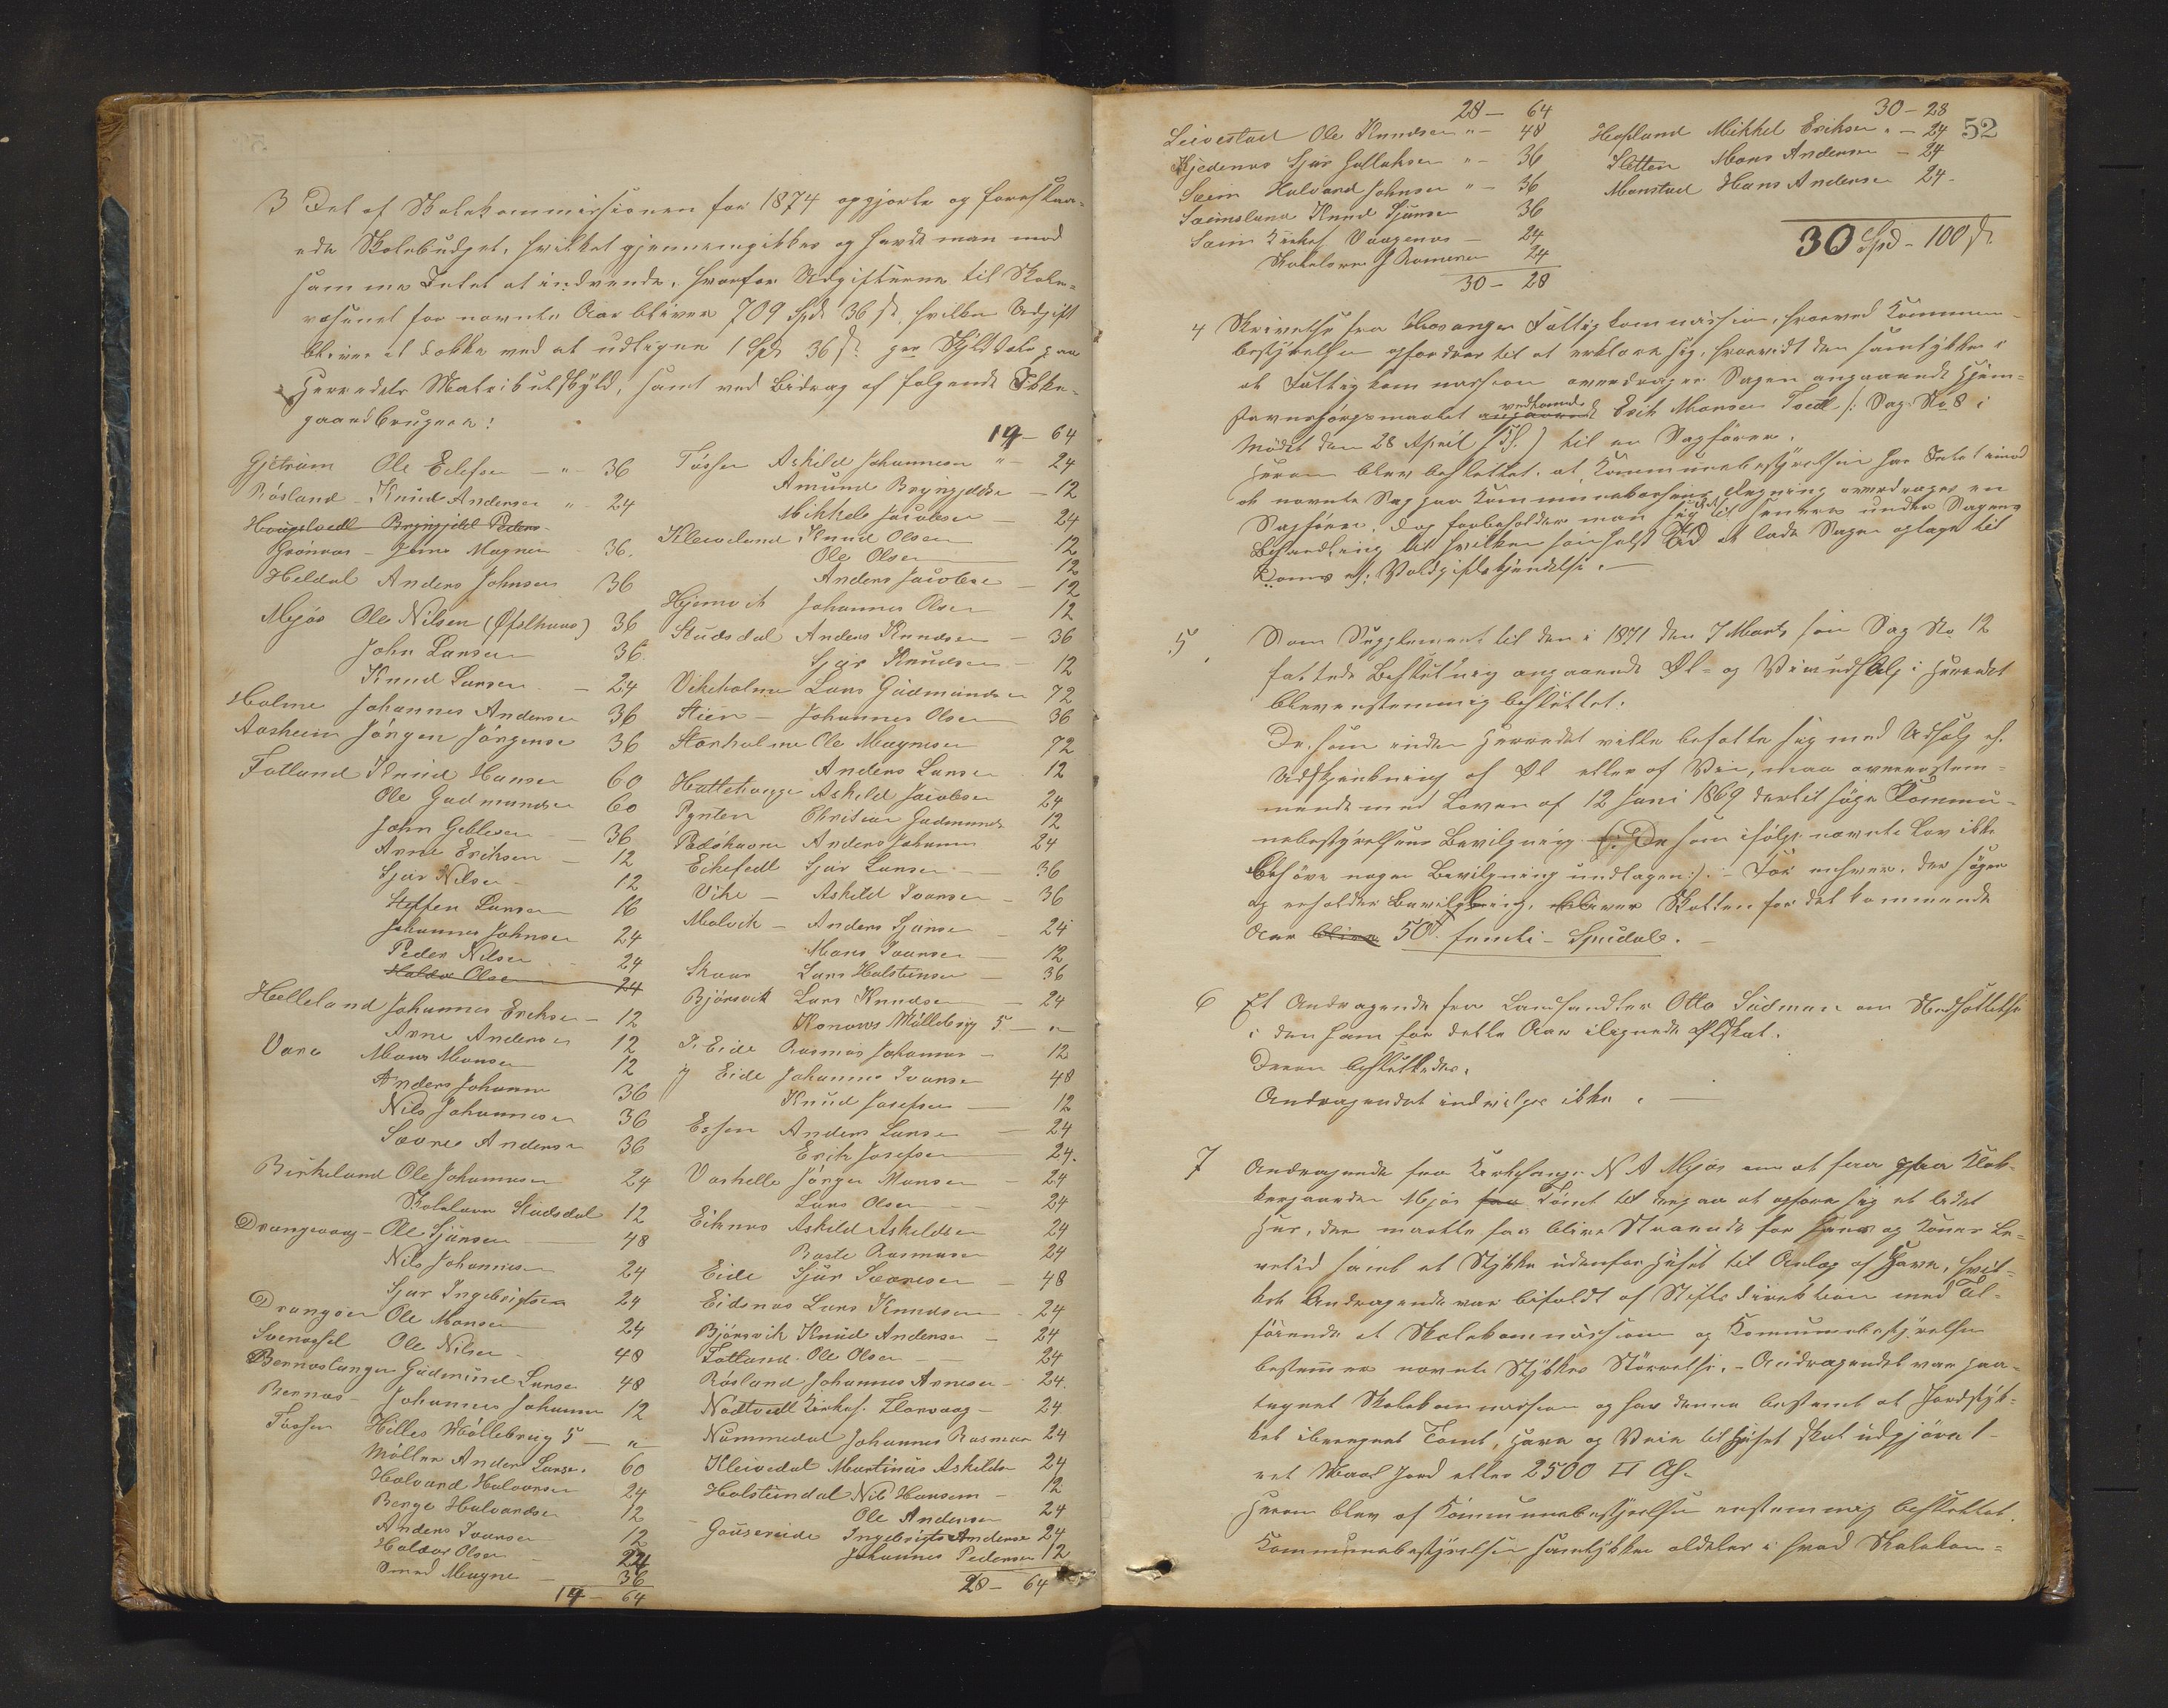 3 Det af Skolekommissionen for 1874 opgjorte og foreslaa-
ede Skolebudget, hvilket gjennemgikkes og havde man mod
samme Intet at indvende, hvorfor Udgifterne til Skole-
væsenet for nævnte Aar bliver 709 Spd 36 ſ, hvilken Udgift
bliver at dække ved at udligne 1 Spd 36 ſ per Skylddaler paa
Herredets Matrikulskyld, samt ved Bidrag af følgende Ikke-
gaardbrugere:
Gjetram Ole Edefsen — " 36
Rósland - Knud Andersen " 24
Haugstvedt Brynjeld Peders
Grónnas - Jens Magnen 36.
Heldal Anders Johnsen 36
Mjós Ole Nilsen (Ófsthuus) 36
John Larsen 36.
Knud Larsen — 24
Holme Johannes Andersen 36
Aasheim Jörgen Jörgense 36
Fotland Knud Hansen 60
Ole Gudmundsen 60
John Geblesen — 36
Arne Eriksen — 12
Sjur Nilsen — 12
Steffen Larsen 16
Johannes Johnsen 24
Peder Nilsen 24
Haldor Olsen 24
Helleland Johannes Eriksen — 12
Arne Andersen 12
Vare Mons Monsen 12
Anders Johanne 36
Nils Johannesen 36
Severe Andersen 36
Birkeland Ole Johannesen 24
Skolelærer Studsdal 12
Drangevaag - Ole Sjursen 48
Nils Johannesen 24
Sjur Ingebrigtsen 24
Drangsen Ole Monsen 24
Ole Nilsen — 48
Bernestangen Gudmund Larse 48
Bernæs - Johannes Johannes 12
Tösser Hilles Möllebrug 5 — "
Möller Anders Larse. 60
Halvard Halvorsen 24
Berge Halvardse 12
Anders Ivarsen 12
Haldor Olsen 24
Smed Magne — 36
14 — 64
14 — 64
Tósser Askild Johannesen " — 24
Amund Brynjeldse — 12
Mikkel Jacobsen — 24
Kleiveland Knud Olsen — 12
Ole Olsen — 12
Anders Jacobse — 12
Hjemvik Johannes Olsen 12
Studsdal Anders Knudsen — 36
Sjur Knudsen — 12
Vikeholmen Lars Gudmundsen 72
Stien — Johannes Olsen 36
Storholmen Ole Magnesen 72
Anders Larsen 12
Hattehauge Askild Jacobsen 24
Pynten Christian Gudmunds 12
Anders Johannes 24
Eikefedt Sjur Larsen — 36
Vike — Askild Ivarsen — 36
Molvik — Anders Sjursen — 24
Mons Ivarsen — 12
Skaar Lars Halsteinsen — 36
Bjórsvik Lars Knudsen — 24
Konows Möllebrug 5 — "
Eide Rasmus Johannes — 12
Eide Johannes Ivarsen 48
Knud Josefsen — 12
Anders Larsen — 24
Erik Josefsen — 24.
Varhelle Jörgen Monsen — 24
Lars Olsen — 24
Eiknes Askild Askildsen 24
Baste Rasmusen 24
Eide Sjur Severesen — 48
Eidsnes Lars Knudsen — 24
Bjórsvik Knud Andersen — 24
Fotland. Ole Olsen — 24
Rósland Johannes Arnesen — 24.
Nódtvedt Kirkes. Flornaag — 24
Nummedal Johannes Rasmus 24
Kleivedal Martinus Askildsen 24
Halsteindal Nils Hansen — 12
Ole Andersen 24
Gauseneide Ingebrigt Anderse 24
Johannes Pedersen 12
28 — 64
52
28 — 64
Leivestad Ole Knudsen " — 48
Kjedenæs Sjur Gullaksen " — 36
Sæim Halvard Johnsen " — 36
Sæimsland Knud Sjursen 36
Sæim Kirkes Vaagenæs — 24
Skolelærer J Romeren 24
30 — 28
30 — 28
Hopland Mikkel Eriksen " — 24
Sletten Mons Andersen — 24
Monstad Hans Andersen 24 -
30 Spd - 100 ſ
4 Skrivelse fra Hosanger Fattigkommission, hvorved Kommune-
bestyrelsen opfordres til at erklære sig, hvorvidt den samtykker i
at Fattigkommissionen overdrager Sagen angaaende Hjem-
stavnsspörgsmaalet angaaende vedkomde Erik Monsen Tvedt /: Sag No 8 i
Mödet den 28 April (Df.) til en Sagförer.
Herom blev besluttet, at Kommunebestyrelsen har Intet imod
at nævnte Sag paa Kommunekassens Regning overdrages en
Sagförer, dog forbeholder man sig Ret til senere under Sagens
Behandling til hvilkensomhelst Tid at lade Sagen optage til
Doms ell: Voldgiftskjendelse. —
5. Som Supplement til den i 1871 den 7 Marts sin Sag No 12
fattede Beslutning angaaende Øl- og Vinudsalg i Herredet
blev enstemmig besluttet:
De, som inden Herredet ville befatte sig med Udsalg el.
Udskjænkning af Øl eller af Vin, maa overenstem-
mende med Loven af 12 Juni 1869 dertil söge Kommu-
nebestyrelsens Bevilgning (: De som ifölge nævnte Lov ikke
behöve nogen Bevilgning undtagen:). — For enhver, der söger
og erholder Bevilgning, bliver Skatten for det kommende
Aar blive 50 femti - Speciedaler. —
6 Et Andragende fra Landhandler Otto Sudman om Nedsættelse
i den ham for dette Aar ilignede Ølskat.
Derom besluttedes:
Andragendet indvilges ikke. —
7 Andragende fra Kirkesanger N A Mjós om at faa paa Klok-
kergaarden Mjós faa Tomt til derpaa at opföre sig et lidet
Huus, der maatte faa blive Staaende for hans og Kones Le-
vetid samt et Stykke udenfor Huset til Anlæg af Have, hvil-
ket Andragende var bifaldt af Stiftsdirektionen med Til-
föiende at Skolekommission og Kommunebestyrelsen
bestemmer nævnte Stykkes Störrelse. - Andragendet var paa-
tegnet Skolekommissionen og har denne bestemt at Jordstyk-
ket iberegnet Tomt, Have og Veie til Huset skal udgjöre 1 -
et Maal Jord eller 2500 □ Al.
Herom blev af Kommunebestyrelsen enstemmig besluttet.
Kommunebestyrelsen samtykker aldeles i hvad Skolekom-